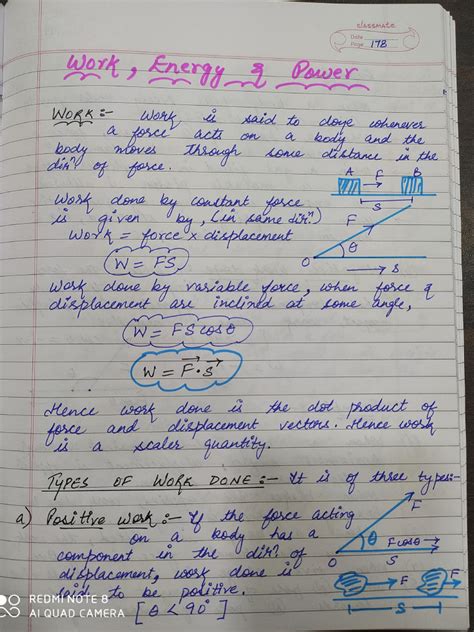 classmate
Date
Page 178
Work, Energy & Power
WORK :- Work is said to done whenever
a force acts on a body and the
body moves through some distance in the
dirn of force.
A F B
S
Work done by constant force
is given by, (in same dirn.)
Work = force x displacement
W = FS
F
θ
O
S
Work done by variable force, when force &
displacement are inclined at some angle,
W = FS cosθ
W = F⃗ . S⃗
Hence work done is the dot product of
force and displacement vectors. Hence work
is a scaler quantity.
TYPES OF WORK DONE :- It is of three types:-
a) Positive Work :- If the force acting
on a body has a
component in the dirn of
displacement, work done is
said to be positive.
[θ < 90°]
F
θ
F cosθ
O
S
F
F
S
REDMI NOTE 8
AI QUAD CAMERA